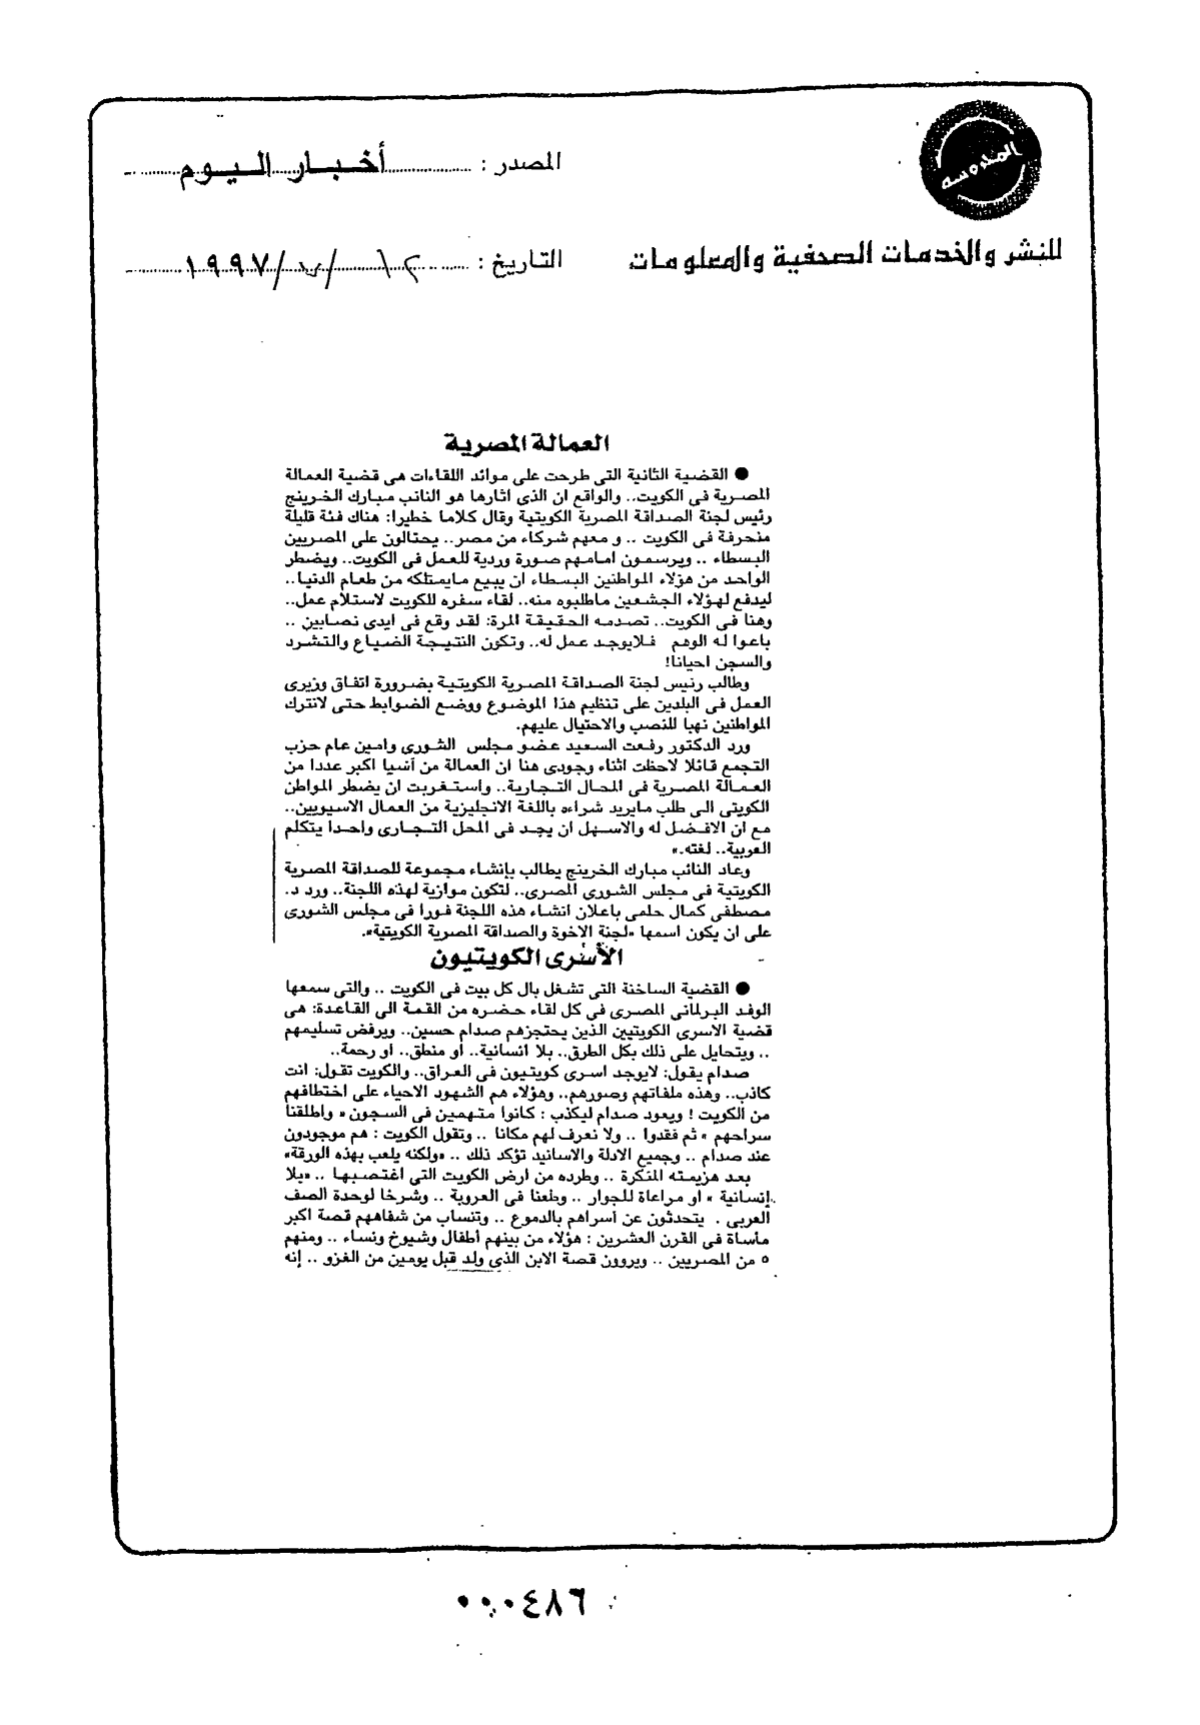 المحروسه
المصدر : أخبار اليوم
للنشر والخدمات الصحفية والمعلومات
التاريخ : ١٢ / ٧ / ١٩٩٧
العمالة المصرية
● القضية الثانية التى طرحت على موائد اللقاءات هى قضية العمالة
المصرية فى الكويت.. والواقع ان الذى اثارها هو النائب مبارك الخرينج
رئيس لجنة الصداقة المصرية الكويتية وقال كلاما خطيرا: هناك فئة قليلة
منحرفة فى الكويت .. و معهم شركاء من مصر.. يحتالون على المصريين
البسطاء .. ويرسمون امامهم صورة وردية للعمل فى الكويت.. ويضطر
الواحد من هؤلاء المواطنين البسطاء ان يبيع مايمتلكه من طعام الدنيا..
ليدفع لهؤلاء الجشعين ماطلبوه منه.. لقاء سفره للكويت لاستلام عمل..
وهنا فى الكويت.. تصدمه الحقيقة المرة: لقد وقع فى ايدى نصابين ..
باعوا له الوهم فلايوجد عمل له.. وتكون النتيجة الضياع والتشرد
والسجن احيانا!
وطالب رئيس لجنة الصداقة المصرية الكويتية بضرورة اتفاق وزيرى
العمل فى البلدين على تنظيم هذا الموضوع ووضع الضوابط حتى لانترك
المواطنين نهبا للنصب والاحتيال عليهم.
ورد الدكتور رفعت السعيد عضو مجلس الشورى وامين عام حزب
التجمع قائلا لاحظت اثناء وجودى هنا ان العمالة من أسيا اكبر عددا من
العمالة المصرية فى المحال التجارية.. واستغربت ان يضطر المواطن
الكويتى الى طلب مايريد شراءه باللغة الانجليزية من العمال الاسيويين..
مع ان الافضل له والاسهل ان يجد فى المحل التجارى واحدا يتكلم
العربية.. لغته.»
وعاد النائب مبارك الخرينج يطالب بإنشاء مجموعة للصداقة المصرية
الكويتية فى مجلس الشورى المصرى.. لتكون موازية لهذه اللجنة.. ورد د.
مصطفى كمال حلمى باعلان انشاء هذه اللجنة فورا فى مجلس الشورى
على ان يكون اسمها «لجنة الاخوة والصداقة المصرية الكويتية».
الأسرى الكويتيون
● القضية الساخنة التى تشغل بال كل بيت فى الكويت .. والتى سمعها
الوفد البرلمانى المصرى فى كل لقاء حضره من القمة الى القاعدة: هى
قضية الاسرى الكويتيين الذين يحتجزهم صدام حسين.. ويرفض تسليمهم
.. ويتحايل على ذلك بكل الطرق.. بلا انسانية.. او منطق.. او رحمة..
صدام يقول: لايوجد اسرى كويتيون فى العراق.. والكويت تقول: انت
كاذب.. وهذه ملفاتهم وصورهم.. وهؤلاء هم الشهود الاحياء على اختطافهم
من الكويت ! ويعود صدام ليكذب : كانوا متهمين فى السجون » واطلقنا
سراحهم » ثم فقدوا .. ولا نعرف لهم مكانا .. وتقول الكويت : هم موجودون
عند صدام .. وجميع الادلة والاسانيد تؤكد ذلك .. «ولكنه يلعب بهذه الورقة»
بعد هزيمته المنكرة .. وطرده من ارض الكويت التى اغتصبها .. «بلا
إنسانية » او مراعاة للجوار .. وطعنا فى العروبة .. وشرخا لوحدة الصف
العربى . يتحدثون عن أسراهم بالدموع .. وتنساب من شفاههم قصة اكبر
مأساة فى القرن العشرين : هؤلاء من بينهم أطفال وشيوخ ونساء .. ومنهم
٥ من المصريين .. ويروون قصة الابن الذى ولد قبل يومين من الغزو .. إنه
٠٠٠٤٨٦